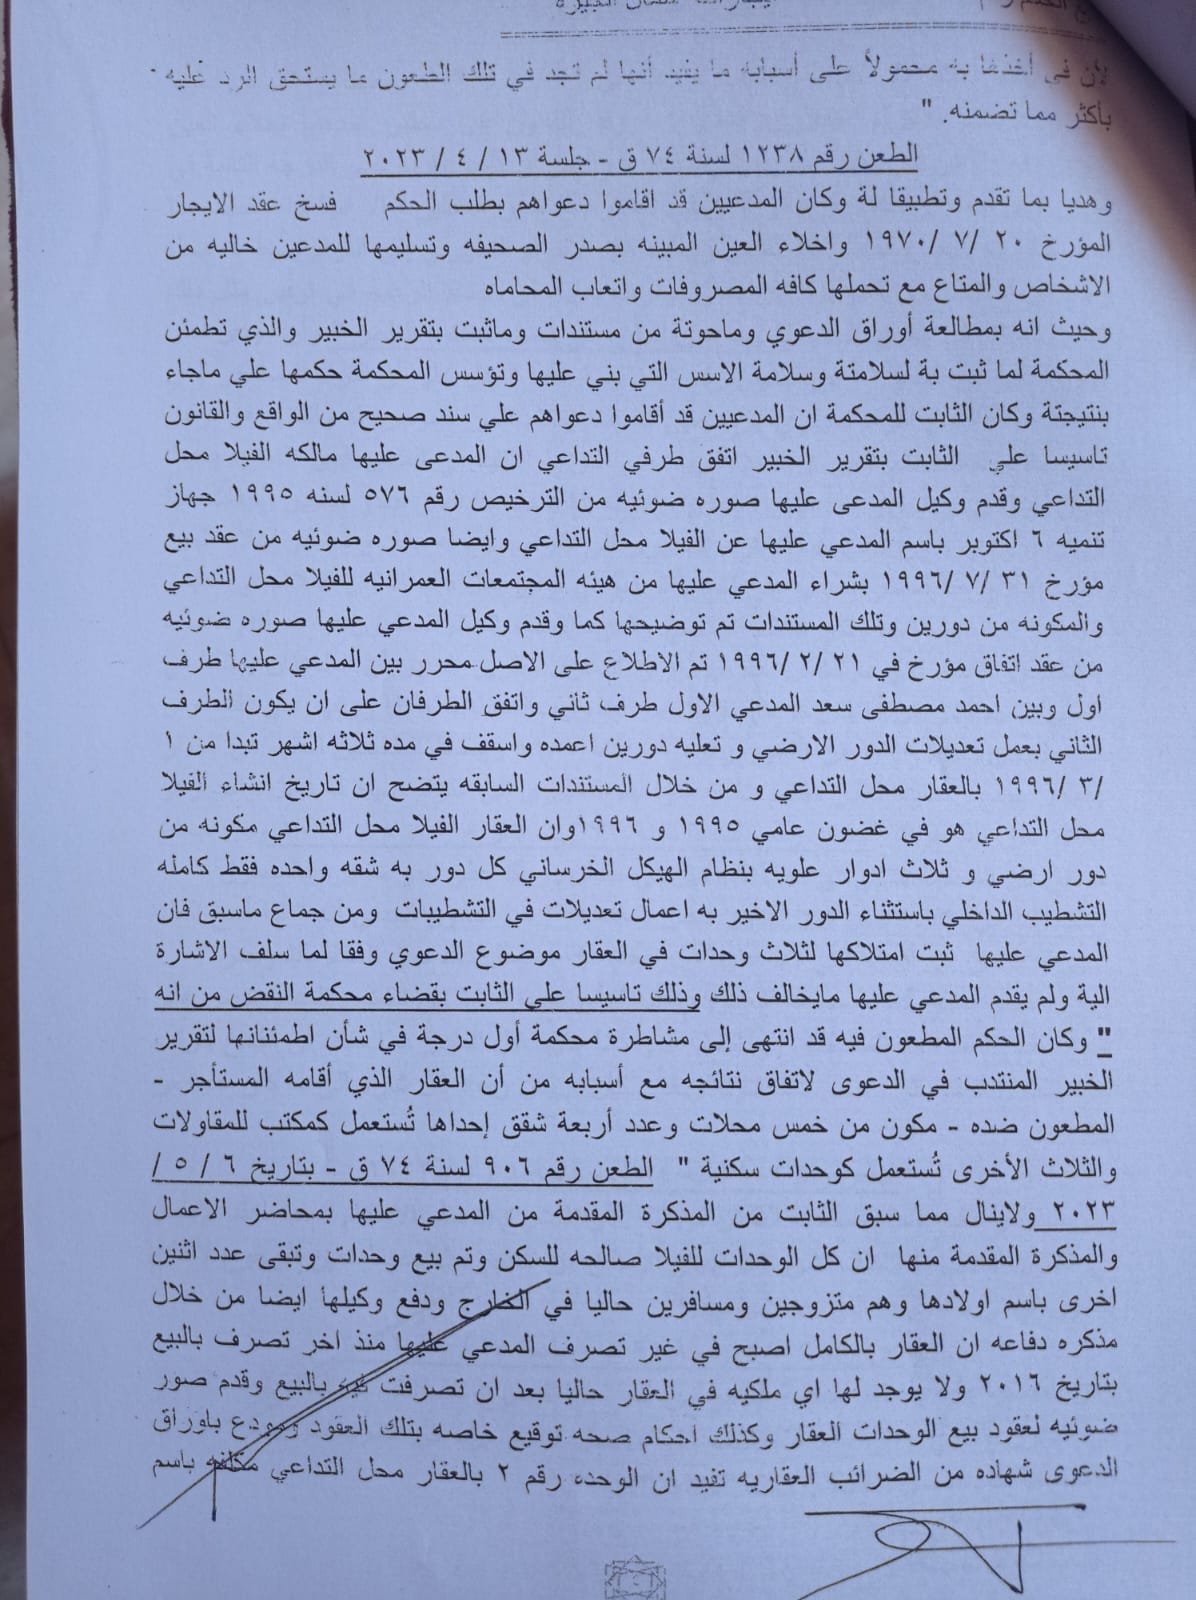 لأن في أخذها به محمولاً على أسبابه ما يفيد أنها لم تجد في تلك الطعون ما يستحق الرد عليه
بأكثر مما تضمنه. "
الطعن رقم ١٢٣٨ لسنة ٧٤ ق - جلسة ١٣ / ٤ / ٢٠٢٣
وهديا بما تقدم وتطبيقا لة وكان المدعيين قد اقاموا دعواهم بطلب الحكم فسخ عقد الايجار
المؤرخ ٢٠ /٧ /١٩٧٠ واخلاء العين المبينه بصدر الصحيفه وتسليمها للمدعين خاليه من
الاشخاص والمتاع مع تحملها كافه المصروفات واتعاب المحاماه
وحيث انه بمطالعة أوراق الدعوي وماحوتة من مستندات وماثبت بتقرير الخبير والذي تطمئن
المحكمة لما ثبت بة لسلامتة وسلامة الاسس التي بني عليها وتؤسس المحكمة حكمها علي ماجاء
بنتيجتة وكان الثابت للمحكمة ان المدعيين قد أقاموا دعواهم علي سند صحيح من الواقع والقانون
تاسيسا علي الثابت بتقرير الخبير اتفق طرفي التداعي ان المدعى عليها مالكه الفيلا محل
التداعي وقدم وكيل المدعى عليها صوره ضوئيه من الترخيص رقم ٥٧٦ لسنه ١٩٩٥ جهاز
تنميه ٦ اكتوبر باسم المدعي عليها عن الفيلا محل التداعي وايضا صوره ضوئيه من عقد بيع
مؤرخ ٣١ /٧ /١٩٩٦ بشراء المدعي عليها من هيئه المجتمعات العمرانيه للفيلا محل التداعي
والمكونه من دورين وتلك المستندات تم توضيحها كما وقدم وكيل المدعي عليها صوره ضوئيه
من عقد اتفاق مؤرخ في ٢١ /٢ /١٩٩٦ تم الاطلاع على الاصل محرر بين المدعي عليها طرف
اول وبين احمد مصطفى سعد المدعي الاول طرف ثاني واتفق الطرفان على ان يكون الطرف
الثاني بعمل تعديلات الدور الارضي و تعليه دورين اعمده واسقف في مده ثلاثه اشهر تبدا من ١
/٣ /١٩٩٦ بالعقار محل التداعي و من خلال المستندات السابقه يتضح ان تاريخ انشاء الفيلا
محل التداعي هو في غضون عامي ١٩٩٥ و ١٩٩٦وان العقار الفيلا محل التداعي مكونه من
دور ارضي و ثلاث ادوار علويه بنظام الهيكل الخرساني كل دور به شقه واحده فقط كامله
التشطيب الداخلي باستثناء الدور الاخير به اعمال تعديلات في التشطيبات ومن جماع ماسبق فان
المدعي عليها ثبت امتلاكها لثلاث وحدات في العقار موضوع الدعوي وفقا لما سلف الاشارة
الية ولم يقدم المدعي عليها مايخالف ذلك وذلك تاسيسا علي الثابت بقضاء محكمة النقض من انه
" وكان الحكم المطعون فيه قد انتهى إلى مشاطرة محكمة أول درجة في شأن اطمئنانها لتقرير
الخبير المنتدب في الدعوى لاتفاق نتائجه مع أسبابه من أن العقار الذي أقامه المستأجر -
المطعون ضده - مكون من خمس محلات وعدد أربعة شقق إحداها تُستعمل كمكتب للمقاولات
والثلاث الأخرى تُستعمل كوحدات سكنية " الطعن رقم ٩٠٦ لسنة ٧٤ ق - بتاريخ ٦ / ٥ /
٢٠٢٣ ولاينال مما سبق الثابت من المذكرة المقدمة من المدعي عليها بمحاضر الاعمال
والمذكرة المقدمة منها ان كل الوحدات للفيلا صالحه للسكن وتم بيع وحدات وتبقى عدد اثنين
اخرى باسم اولادها وهم متزوجين ومسافرين حاليا في الخارج ودفع وكيلها ايضا من خلال
مذكره دفاعه ان العقار بالكامل اصبح في غير تصرف المدعي عليها منذ اخر تصرف بالبيع
بتاريخ ٢٠١٦ ولا يوجد لها اي ملكيه في العقار حاليا بعد ان تصرفت فيه بالبيع وقدم صور
ضوئيه لعقود بيع الوحدات العقار وكذلك احكام صحه توقيع خاصه بتلك العقود ومودع باوراق
الدعوى شهاده من الضرائب العقاريه تفيد ان الوحده رقم ٢ بالعقار محل التداعي مكلفه باسم